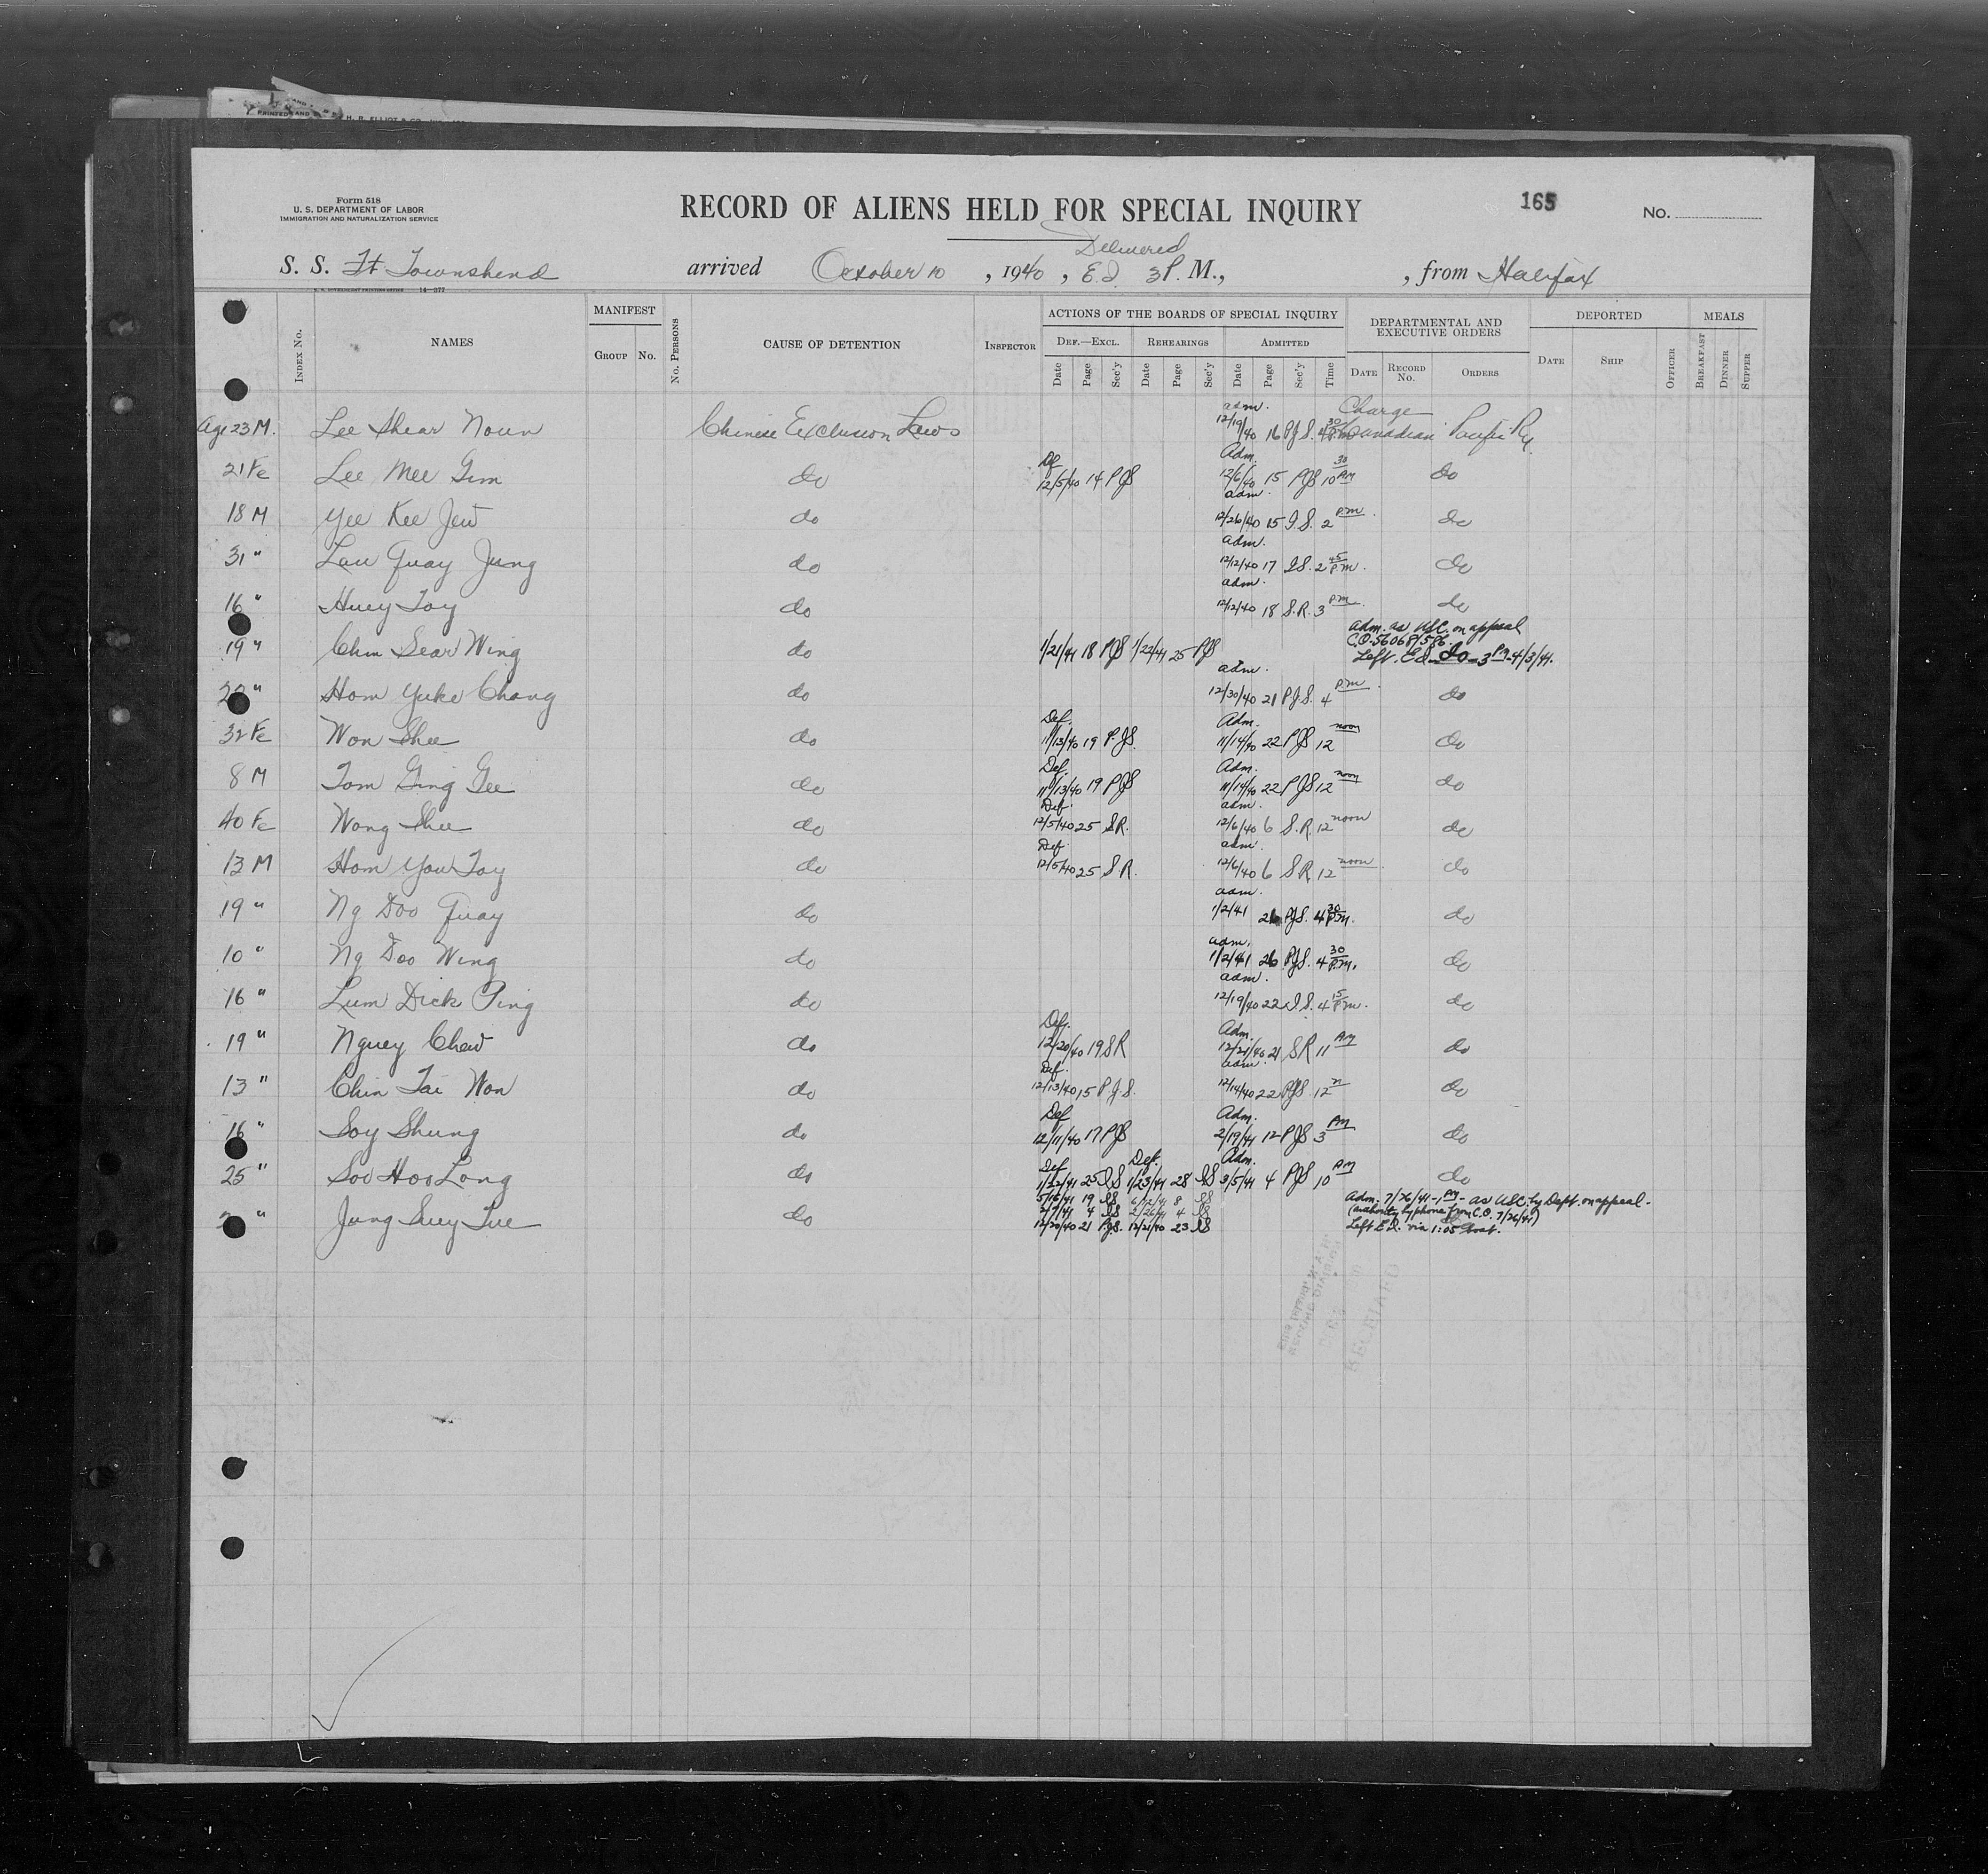 H. R. ELLIOT & CO.
Form 518
U. S. DEPARTMENT OF LABOR
IMMIGRATION AND NATURALIZATION SERVICE
RECORD OF ALIENS HELD FOR SPECIAL INQUIRY
165
No.
Delivered
S. S. Ft Townshend arrived October 10, 1940, E.I. 3 P. M., , from Halifax
14—577
INDEX No. NAMES MANIFEST GROUP No. No. PERSONS CAUSE OF DETENTION INSPECTOR ACTIONS OF THE BOARDS OF SPECIAL INQUIRY DEPARTMENTAL AND EXECUTIVE ORDERS DEPORTED MEALS
DEF.—EXCL. REHEARINGS ADMITTED
Date Page Sec'y Date Page Sec'y Date Page Sec'y Time DATE RECORD No. ORDERS DATE SHIP OFFICER BREAKFAST DINNER SUPPER
adm. Charge
Age 23 M. Lee Shear Noun Chinese Exclusion Laws 12/19/40 16 PJS. 4 30 P.M. Canadian Pacific Ry
Def Adm.
21 Fe Lee Mee Gim do 12/5/40 14 PJS 12/6/40 15 PJS 10 30 AM do
adm.
18 M Yee Kee Jew do 12/26/40 15 I.S. 2 PM do
adm.
31 " Lau Quay Jung do 12/12/40 17 I.S. 2 45 P.M. do
adm.
16 " Huey Toy do 12/12/40 18 S.R. 3 PM do
adm. as USC. on appeal
C.O. 56068/586.
19 " Chin Sear Wing do 1/21/41 18 PJS 1/22/41 25 PJS Left E.I. do 3 PM 4/3/41.
adm.
" Hom Yuke Chong do 12/30/40 21 P.J.S. 4 PM do
Def. Adm.
32 Fe Won Shee do 11/13/40 19 P.JS. 11/14/40 22 PJS 12 noon do
Def. Adm.
8 M Tom Ging Gee do 11/13/40 19 PJS 11/14/40 22 PJS 12 noon do
Def. adm.
40 Fe Wong Shee do 12/5/40 25 SR. 12/6/40 6 S.R. 12 noon do
Def. adm.
13 M Hom You Toy do 12/5/40 25 SR. 12/6/40 6 SR, 12 noon do
adm.
19 " Ng Doo Quay do 1/2/41 26 PJS. 4 30 P.M. do
adm.
10 " Ng Doo Wing do 1/2/41 26 PJS. 4 30 P.M. do
adm.
16 " Lum Dick Ping do 12/19/40 22 I.S. 4 15 P.M. do
Def. Adm.
19 " Nguey Chew do 12/20/40 19 SR 12/21/40 21 SR 11 AM do
Def. adm.
13 " Chin Tai Won do 12/13/40 15 P.J.S. 12/14/40 22 PJS 12 n do
Def Adm.
16 " Soy Shung do 12/11/40 17 PJS 2/19/41 12 PJS 3 PM do
Def Def. Adm.
25 " Soo Hoo Long do 1/22/41 25 IS 1/23/41 28 IS 3/5/41 4 PJS 10 AM do
5/15/41 19 IS 6/12/41 8 IS Adm. 7/26/41-1 PM - as USC. by Dept. on appeal -
" Jung Suey Lue do 2/7/41 4 IS 2/26/41 4 IS (authority by phone from C.O. 7/26/41)
12/20/40 21 P.J.S. 12/21/40 23 IS Left E.I. via 1:05 boat.